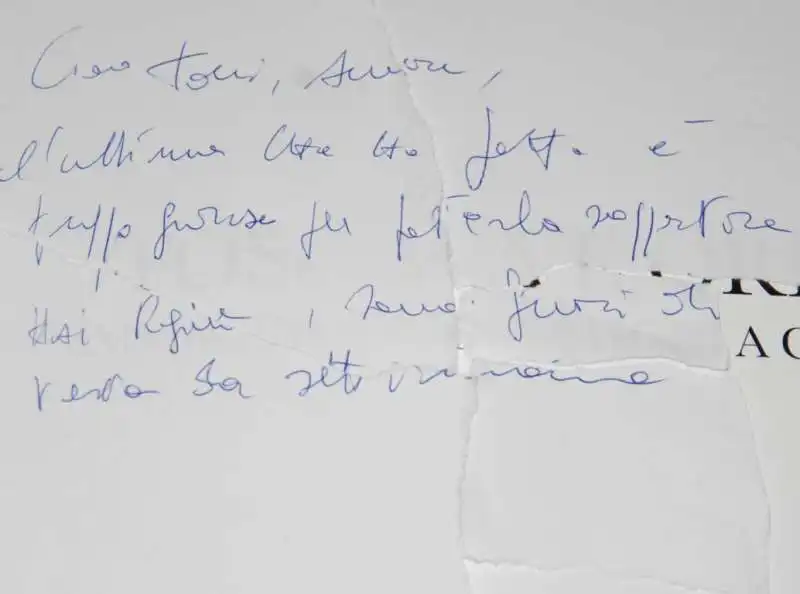 Ciao Toni, amore,
l'ultima che ho fatto è
troppo grossa per poterla sopportare
Hai ragione, sono fuori di
testa da settimane
A